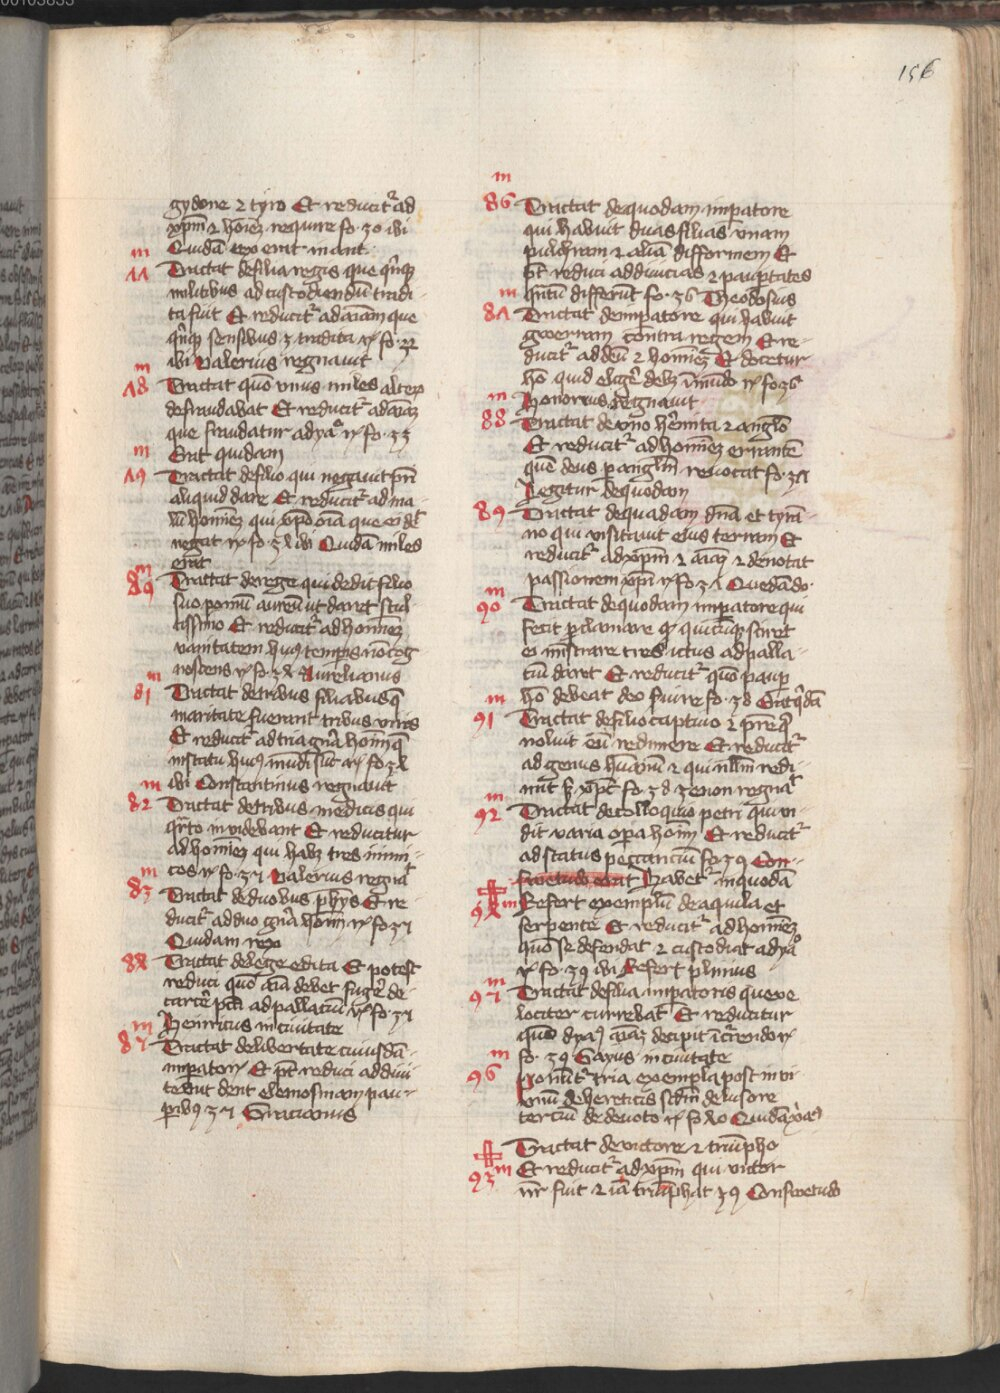 00103833
156
gydone ⁊ tyro Et reducit᷑ ad
xp̄m ⁊ hoīez require fo · 30 ibi
Quidā rex erat in ant
m
77 Tractat de filia regis que qīnqꝫ
militibus ad custodiendū tradi-
ta fuit Et reducit᷑ ad aīam que
qīnqꝫ sensibus ē tradita fo ·
ibi Valerius regnauit
m
78 Tractat quō vnus miles alterꝫ
defraudabat Et reducit᷑ ad aīaz
que fraudatur a dya° fo · 33
m Erat quidam
79 Tractat de filio qui negauit pr̄i
aliquid dare Et reducit᷑ ad ma-
lū hoīnez qui xp̄o oīa que ei d
negat fo · 34 ibi Quidā miles
erat
m
80 Tractat de rege qui dedit filio
suo pomū aureū ut daret stul-
tissimo Et reducit᷑ ad hoīnez
vanitatem huiꝰ temꝑis nō cog
noscens fo · 34 Aurelianus
m
81 Tractat de tribus filiabus q̄
maritate fuerunt tribus viris
Et reducit᷑ ad tria gn̄a hoīm q̄
in statu huiꝰ mūdi sūt fo 34
m ibi Constantinus regnauit
82 Tractat de tribus medicis qui
qͣrto inuidebant Et reducitur
ad hoīnez qui habꝫ tres inimi-
m cos fo · 35 Valerius regna
83 Tractat de duobus ph̄ys Et re-
ducit᷑ ad duo gn̄a hoīm fo 35
Quidam rex
84 Tractat de lege edita Et potest
reduci quō aīa debet fug̾e de
carcē pcī ad pallacium fo · 35
m Heinricus in ciuitate
85 Tractat de libertate cuiusdā
imperatorꝫ Et pt̄ reduci ad diui
tes ut dent elemosinam pau-
peribꝰ 35 Gracianus
m
86 Tractat de quodam impatore
qui habuit duas filias vnam
pulchram ⁊ aliā difformem Et
pt̄ reduci ad diuicias ⁊ paupertates
m qntū differūt fo · 36 Theodosius
87 Tractat de impatore qui habuit
gwerram contra regem Et re-
ducit᷑ ad deū ⁊ hoīnez Et docetur
hō quid elig̾e debꝫ ī mūdo fo 36
m Honorius regnauit
88 Tractat de vno h̾emita ⁊ anglo
Et reducit᷑ ad hoīnez errantē
quē deus p anglm̄ reuocat fo · 37
Legitur de quodam
89 Tractat de quadam dn̄a et tyrā-
no qui visitauit eius terram Et
reducit᷑ ad xp̄m ⁊ aīaz ⁊ denotat
passionem xpī fo · 37 Quedā do
m
90 Tractat de quodam impatore qui
fecit proclamare qꝫ quicūqꝫ sciret
ei mīstrare tres ictus ad palla-
ciū daret Et reducit᷑ quō paup
m hō debeat deo s̾uire fo · 38 Erat qͥdā
91 Tractat de filio captiuo ⁊ pr̄e q̄
noluit eū redimere Et reducit᷑
ad genus humanū ⁊ qui nllm̄ redi-
mūt xp̄c fo 38 Zenon regna
m
92 Tractat de colloquio petri qui vi-
dit varia opera hoīm Et reducit᷑
ad status peccancium fo · 39 Con-
swetudo erat Habet᷑ in quodā
m Refert exemplū de aquila et
94 serpente Et reducit᷑ ad hoīnez
quō se defendat ⁊ custodiat a dya°
fo · 39 ibi Refert plinius
m
95 Tractat de filia impatoris que ve
lociter currebat Et reducitur
quō dyaꝰ aīaz decipit ī c̾rendo
m fo · 39 Gayus in ciuitate
96 ponūt᷑ tria exempla post inui
vnū de hereticis scdm̄ de lusore
terciū de deuoto fo 40 Quidā
Tractat de victore ⁊ triūpho
m Et reducit᷑ ad xp̄m qui victor
93 nr̄ fuit ⁊ iā triūphat 39 Conswetudo